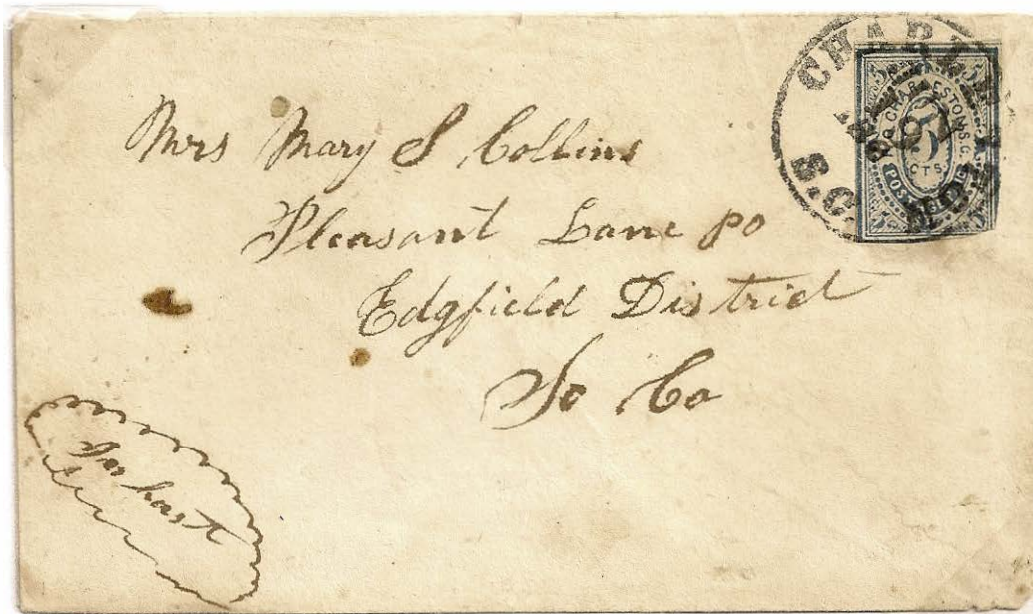 CHARLESTON
S.C.
5 5
P.O. CHARLESTON, S.C.
5
CTS.
POSTAGE
5 5
Mrs Mary S Collins
Pleasant Lane po
Edgfield District
So Ca
In hast